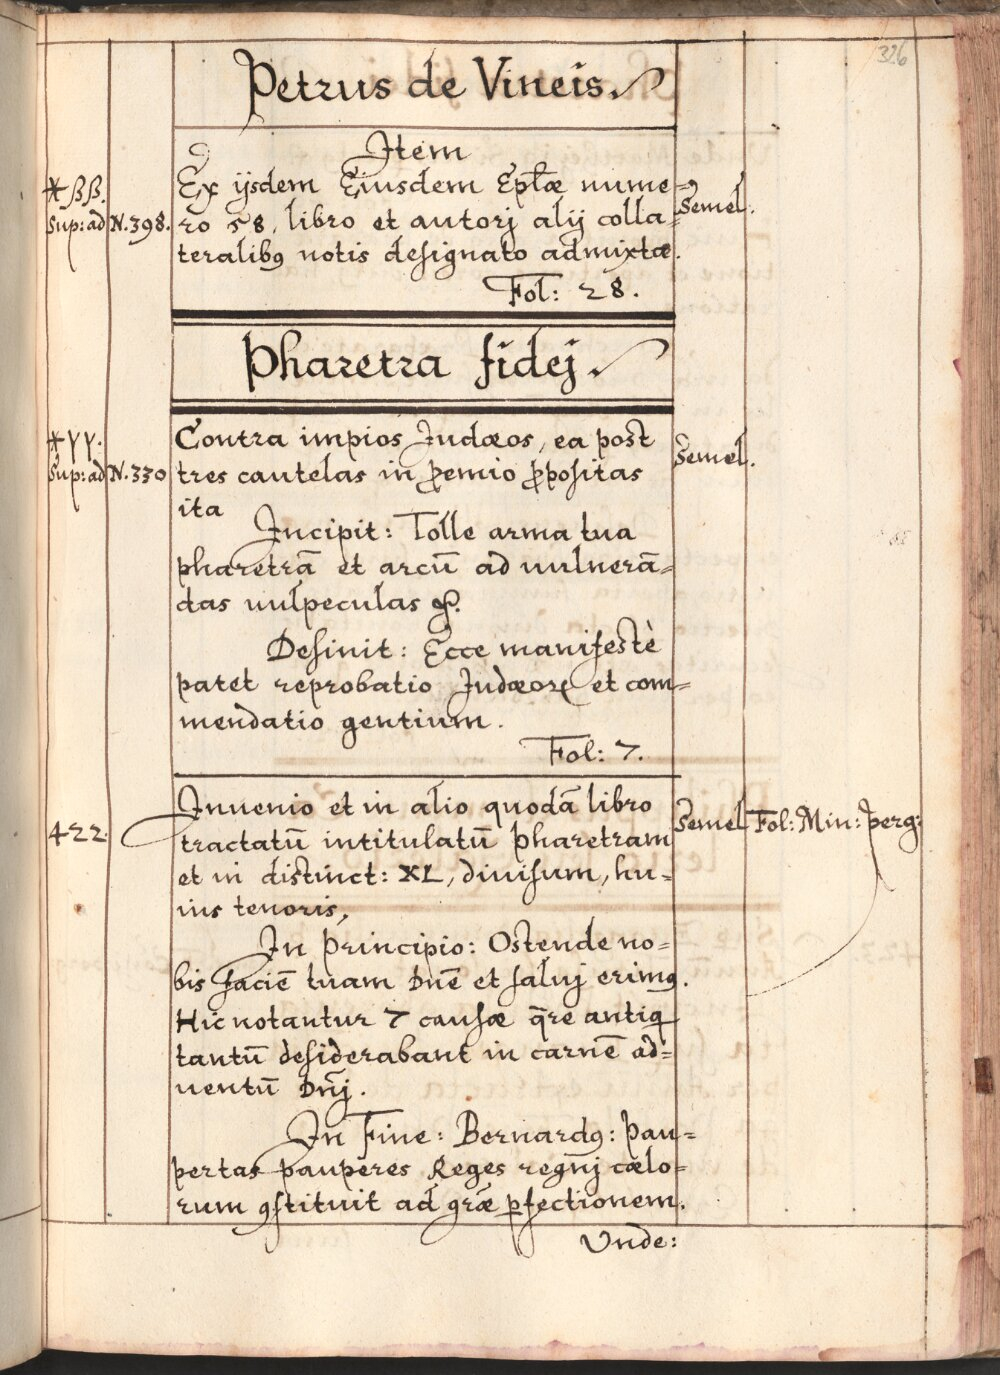 326
Petrus de Vineis.
Item
Ex ijsdem Eiusdem Epłæ nume=
ro 58, libro et autorj alij colla=
teralibꝰ notis designato admixtæ.
Fol: 28.
*ββ.
Sup: ad N. 398.
Semel.
Pharetra fidej.
Contra impios Judæos, ea post
tres cautelas in ꝓemio ꝓpositas
ita
Incipit: Tolle arma tua
pharetrā et arcū ad vulnerā=
das vulpeculas &.
Desinit: Ecce manifestè
patet reprobatio Judæoꝝ et com=
mendatio gentium.
Fol: 7.
*γγ.
Sup: ad N. 330
Semel.
422.
Inuenio et in alio quodā libro
tractatū intitulatū Pharetram
et in distinct: XL, diuisum, hu=
ius tenoris,
In Principio: Ostende no=
bis faciē tuam Dnē et saluj erimꝰ.
Hic notantur 7 causæ q̄re antiq
tantū desiderabant in carnē ad=
uentū Dn̄j.
In Fine: Bernardꝰ: Pau=
pertas pauperes Reges regnj cælo=
rum ꝯstituit ad gr̄æ ꝑfectionem.
Semel
Fol: Min: perg:
Vnde: